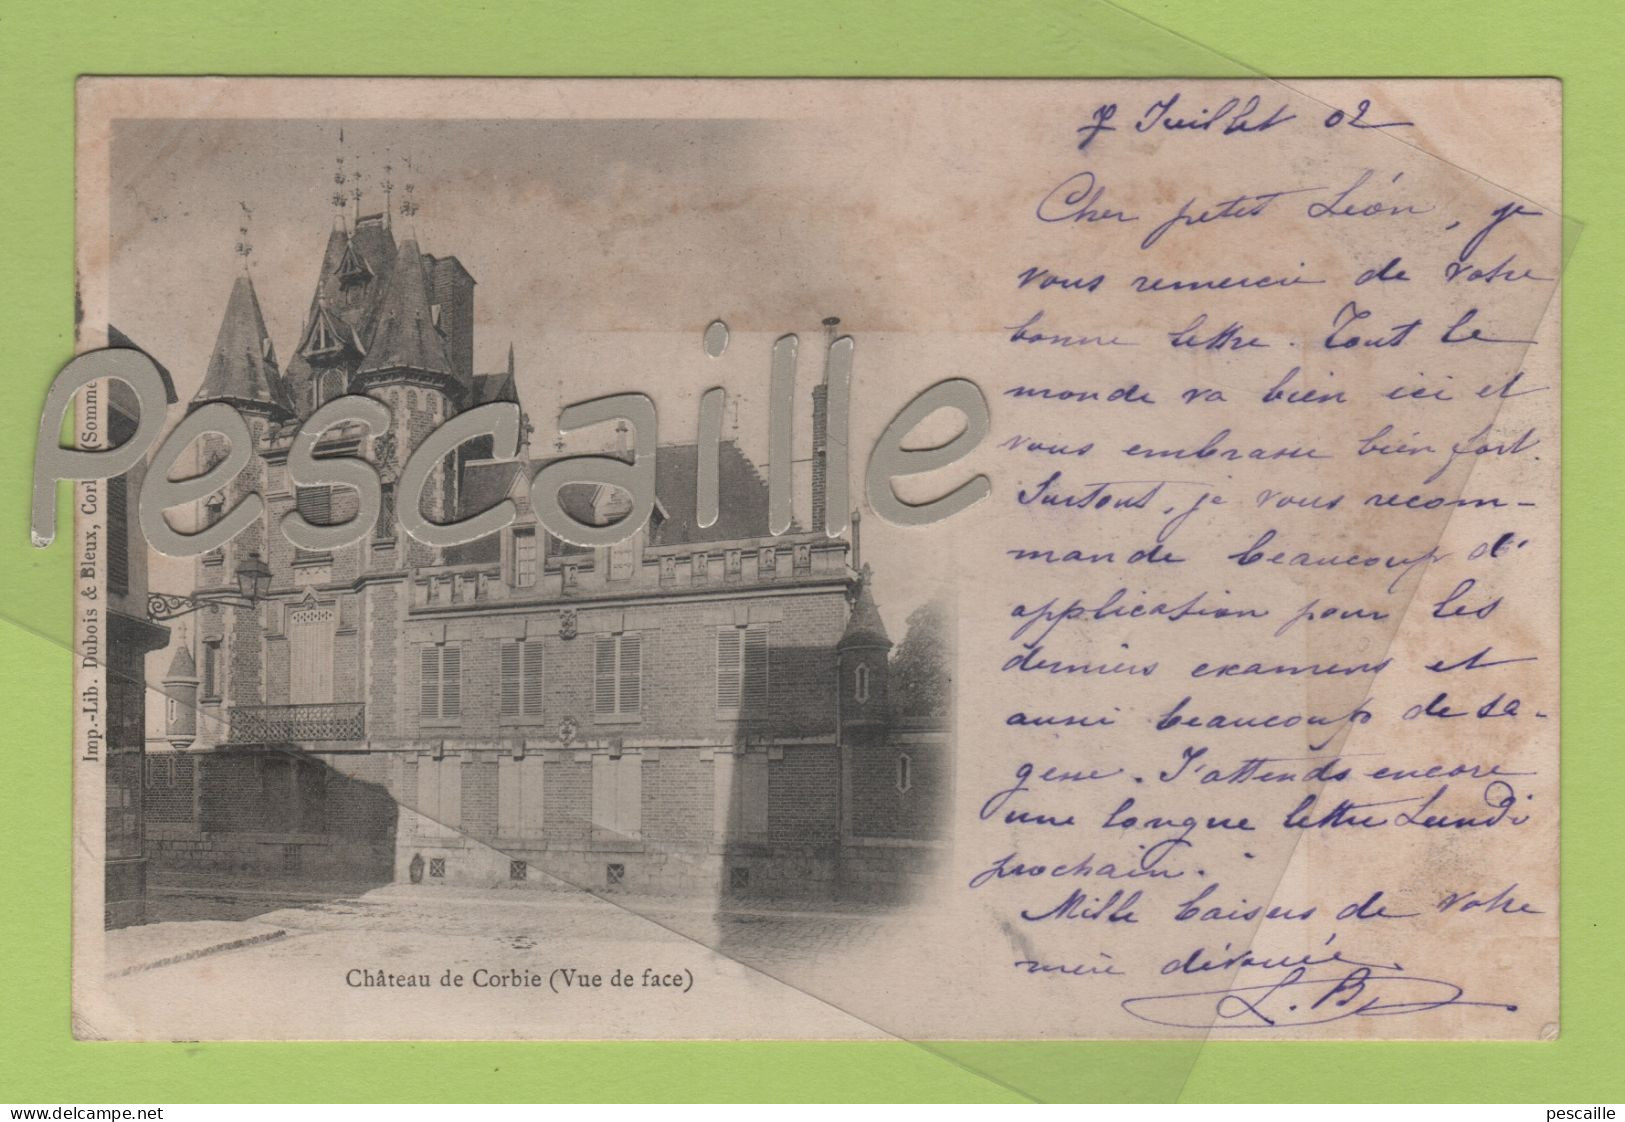 7 Juillet 02
Cher petit Léon, je
vous remercie de votre
bonne lettre. Tout le
monde va bien ici et
vous embrasse bien fort.
Surtout, je vous recom-
mande beaucoup d'
application pour les
derniers examens et
aussi beaucoup de sa-
gesse. J'attends encore
une longue lettre Lundi
prochain.
Mille baisers de votre
mère dévouée.
L. B
Imp.-Lib. Dubois & Bleux, Corb (Somme
Pescaille
Château de Corbie (Vue de face)
https://www.delcampe.net
pescaille